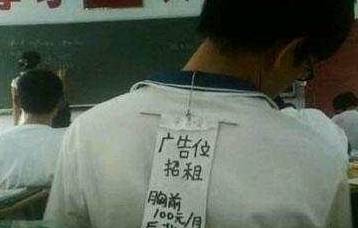 学习
广告位
招租
胸前
100元/月